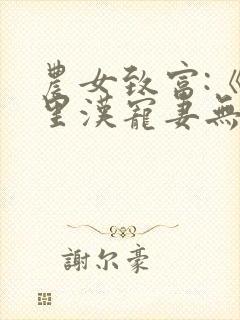 農女致富:《
里漢寵妻無
謝尔豪